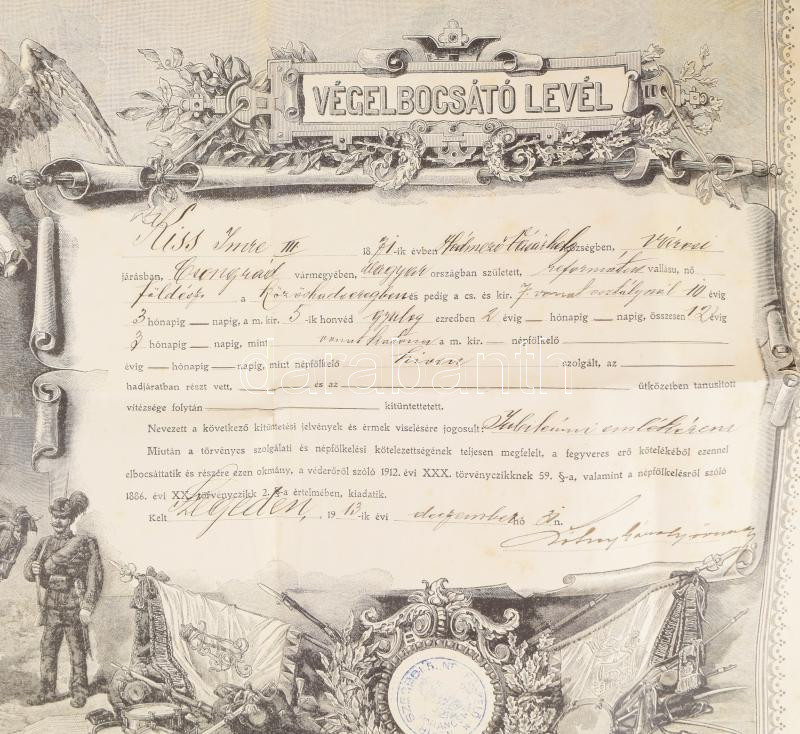 VÉGELBOCSÁTÓ LEVÉL
Kiss Imre III 1871-ik évben Hódmező Vásárhely községben, városi
járásban, Csongrád vármegyében, Magyar országban született, református vallásu, nő
földész a Közös hadseregben és pedig a cs. és kir. 7. vonat osztálynál 10 évig
3 hónapig — napig, a m. kir. 5-ik honvéd gyalog ezredben 2 évig — hónapig — napig, összesen 12 évig
3 hónapig — napig, mint vonat katona a m. kir. — népfölkelő
évig — hónapig — napig, mint népfölkelő szolgált, az
hadjáratban részt vett, és az ütközetben tanusított
vitézsége folytán kitüntettetett.
Nevezett a következő kitüntetési jelvények és érmek viselésére jogosult: Jubileumi emlékérem
Miután a törvényes szolgálati és népfölkelési kötelezettségének teljesen megfelelt, a fegyveres erő kötelékéből ezennel
elbocsáttatik és részére ezen okmány, a véderőről szóló 1912. évi XXX. törvényczikknek 59. §-a, valamint a népfölkelésről szóló
1886. évi XX. törvényczikk 2. §-a értelmében, kiadatik.
Kelt Szegeden, 1913-ik évi dezember hó 31 n.
darabanth